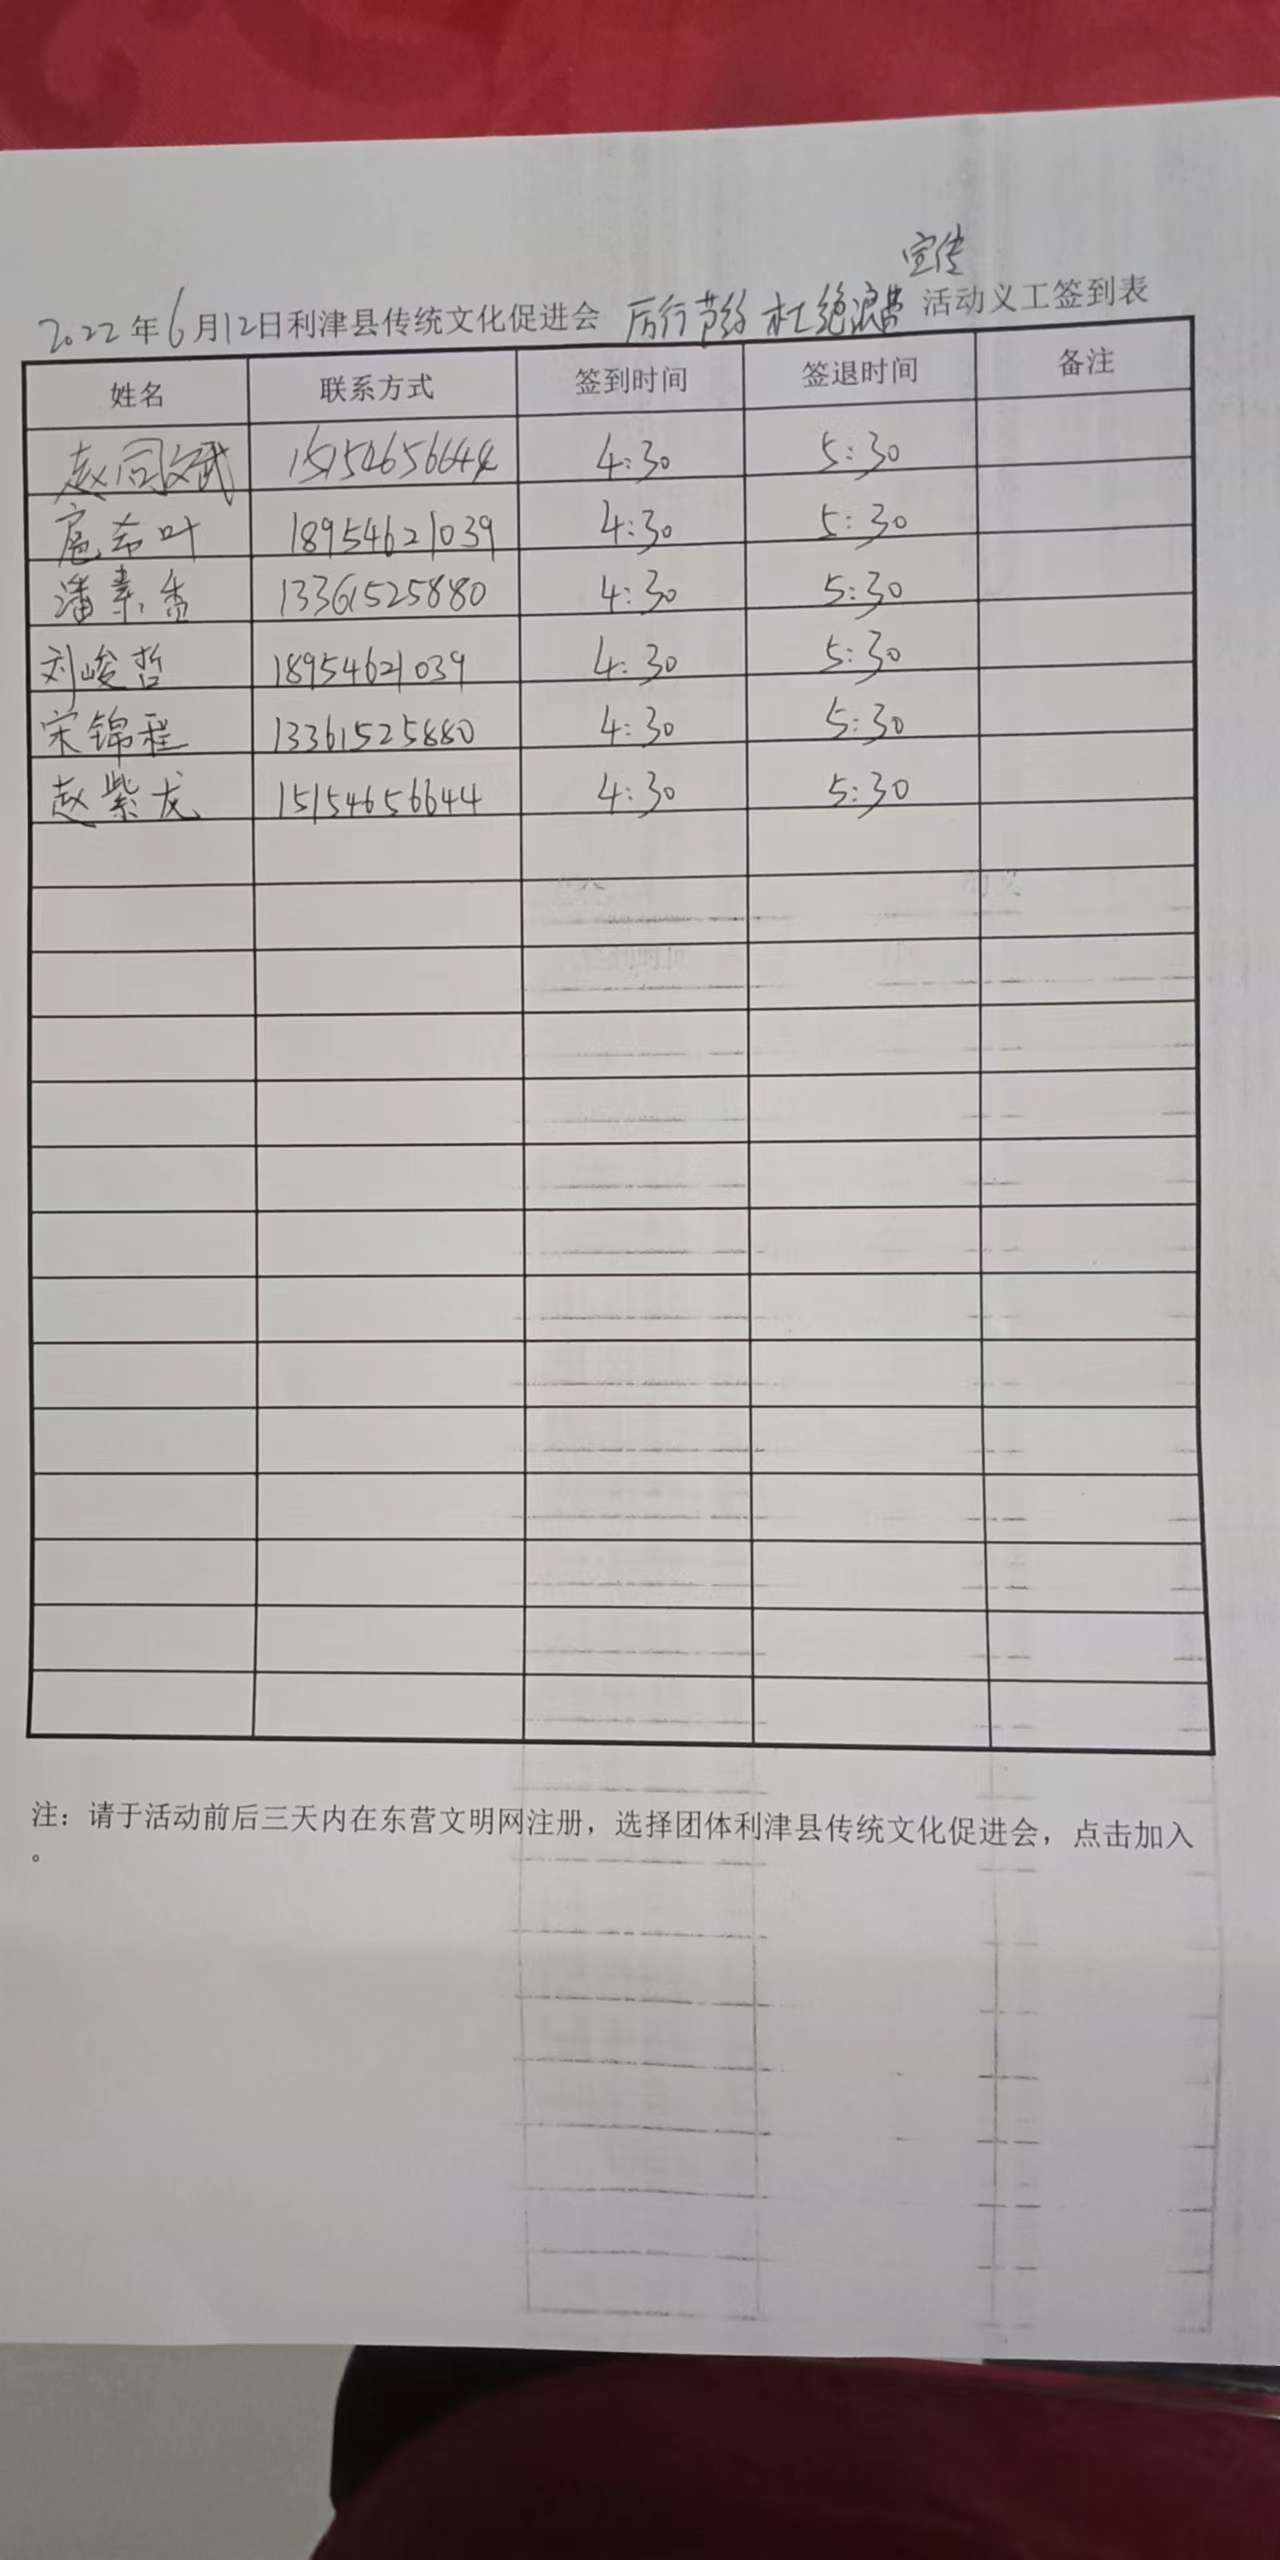 宣传
2022年6月12日利津县传统文化促进会 厉行节约 杜绝浪费 活动义工签到表
姓名 联系方式 签到时间 签退时间 备注
赵同斌 15154656644 4:30 5:30
扈希叶 18954621039 4:30 5:30
潘素香 13361525880 4:30 5:30
刘峻哲 18954621039 4:30 5:30
宋锦程 13361525880 4:30 5:30
赵紫龙 15154656644 4:30 5:30
注：请于活动前后三天内在东营文明网注册，选择团体利津县传统文化促进会，点击加入
。